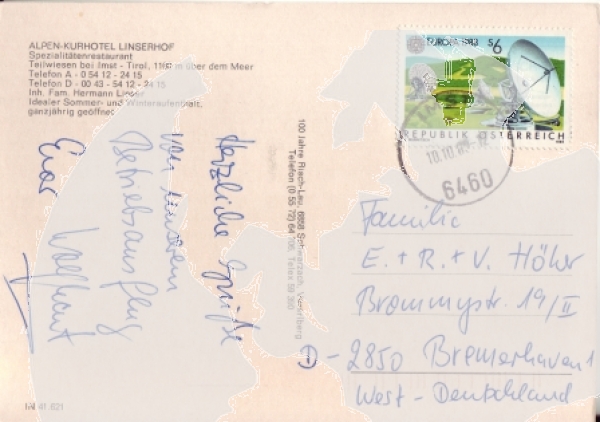 ALPEN-KURHOTEL LINSERHOF
Spezialitätenrestaurant
Teilwiesen bei Imst - Tirol, über dem Meer
Telefon A - 0 54 12 - 24 15
Telefon D - 00 43 - 54 12 - 24 15
Inh. Fam. Hermann Linser
Idealer Sommer- und Winteraufenthalt,
ganzjährig geöffnet
Herzliche Grüße
von unserem
Betriebsausflug
Euer Wolfhart
100 Jahre Risch-Lau, 6858 Schwarzach, Vorarlberg
Telefon (0 55 72) 64 Telex 59
EUROPA 1983 S6
REPUBLIK ÖSTERREICH
10.10.83
6460
Familie
E. + R. + V. Höher
Brommystr. 19/II
- 2850 Bremerhaven 1
West-Deutschland
41 621